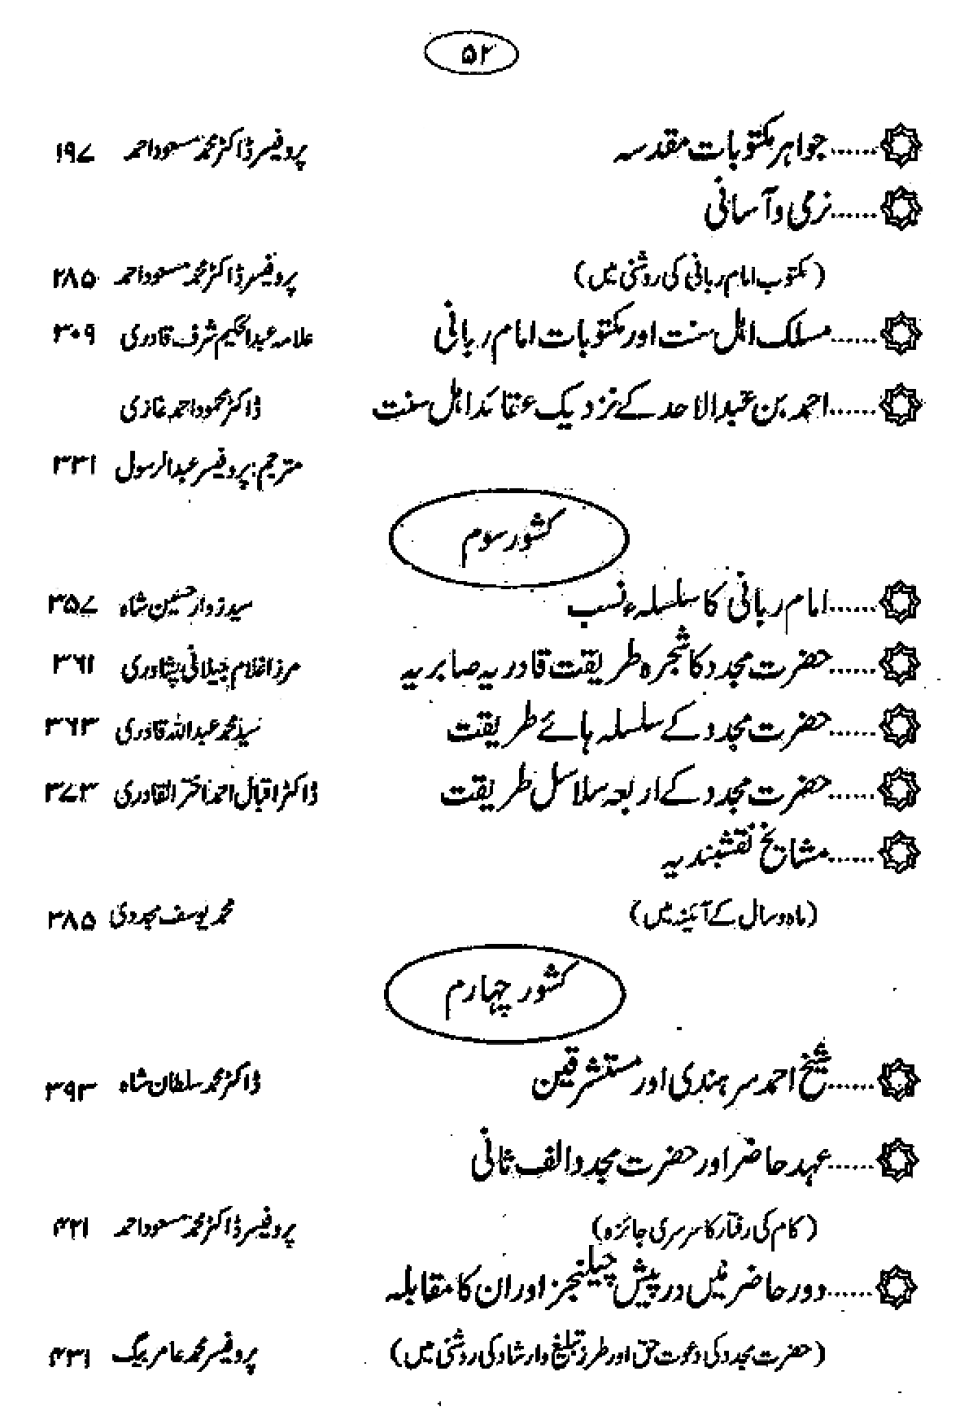 ۵۲
......جواہر مکتوبات مقدسہ پروفیسر ڈاکٹر محمد مسعود احمد ۱۹۷
......نرمی و آسانی
(مکتوب امام ربانی کی روشنی میں) پروفیسر ڈاکٹر محمد مسعود احمد ۲۸۵
......مسلک اہل سنت اور مکتوبات امام ربانی علامہ عبدالحکیم شرف قادری ۳۰۹
......احمد بن عبدالاحد کے نزدیک عقائد اہل سنت ڈاکٹر محمود احمد غازی
مترجم: پروفیسر عبدالرسول ۳۳۱
کشور سوم
......امام ربانی کا سلسلہء نسب سید زوار حسین شاہ ۳۵۷
......حضرت مجدد کا شجرہ طریقت قادریہ صابریہ مرزا غلام جیلانی پشاوری ۳۶۱
......حضرت مجدد کے سلسلہ ہائے طریقت سید محمد عبداللہ قادری ۳۶۳
......حضرت مجدد کے اربعہ سلاسل طریقت ڈاکٹر اقبال احمد اختر القادری ۳۷۳
......مشایخ نقشبندیہ
(ماہ و سال کے آئینہ میں) محمد یوسف مجددی ۳۸۵
کشور چہارم
......شیخ احمد سرہندی اور مستشرقین ڈاکٹر محمد سلطان شاہ ۳۹۳
......عہد حاضر اور حضرت مجدد الف ثانی
(کام کی رفتار کا سرسری جائزہ) پروفیسر ڈاکٹر محمد مسعود احمد ۴۲۱
......دور حاضر میں درپیش چیلنجز اور ان کا مقابلہ
(حضرت مجدد کی دعوت حق اور طرز تبلیغ و ارشاد کی روشنی میں) پروفیسر محمد عامر بیگ ۴۳۱